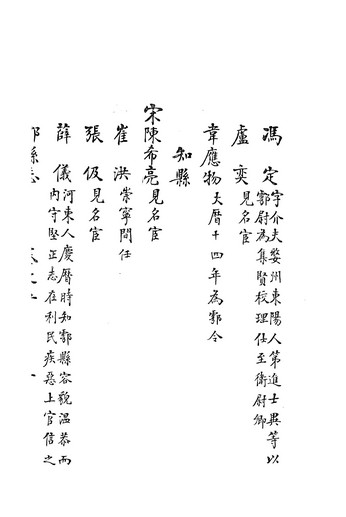 馮定字介夫婺州東陽人第進士異等以
鄠尉為集賢校理任至衛尉卿
盧奕見名宦
韋應物大曆十四年為鄠令
知縣
宋陳希亮見名宦
崔洪崇寧間任
張伋見名宦
薛儀河東人慶曆時知鄠縣容貌溫恭而
內守堅正志在利民疾惡上官信之